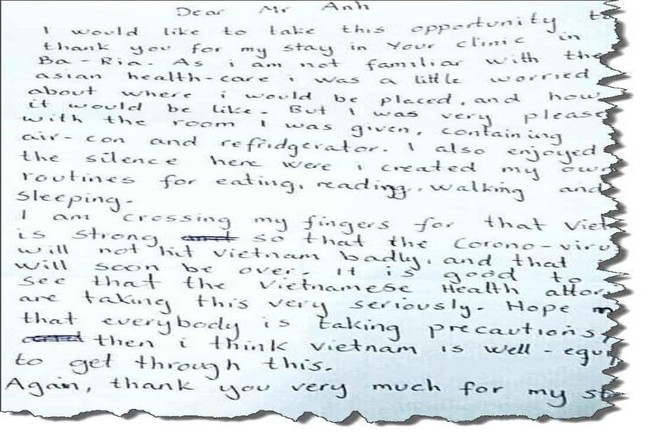 Dear Mr Anh
I would like to take this opportunity to
thank you for my stay in Your clinic in
Ba-Ria. As i am not familiar with the
asian health-care i was a little worried
about where i would be placed, and how
it would be like. But I was very please
with the room I was given, containing
air-con and refridgerator. I also enjoyed
the silence here were i created my own
routines for eating, reading, walking and
sleeping.
I am crossing my fingers for that Viet
is strong and so that the Corono-viru
will not hit Vietnam badly, and that
will soon be over. It is good to
see that the Vietnamese Health attor
are taking this very seriously. Hope
that everybody is taking precautions,
and then i think Vietnam is well-equi
to get through this.
Again, thank you very much for my st